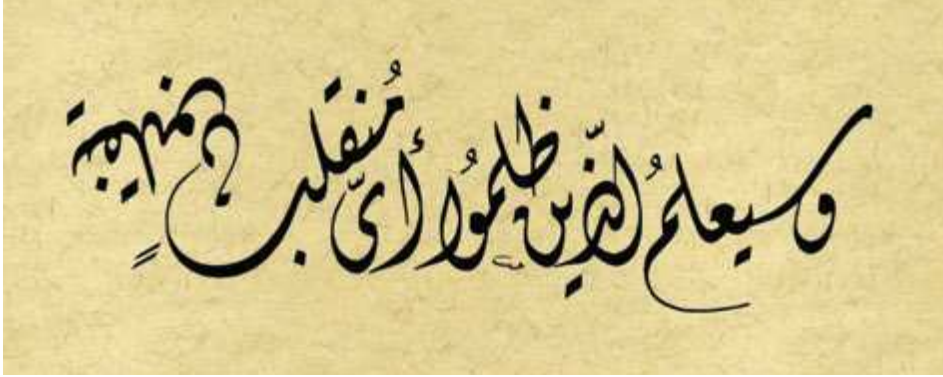 وسيعلمُ الذّين ظلموُا أىّ مُنقلبٍ ينقلبون